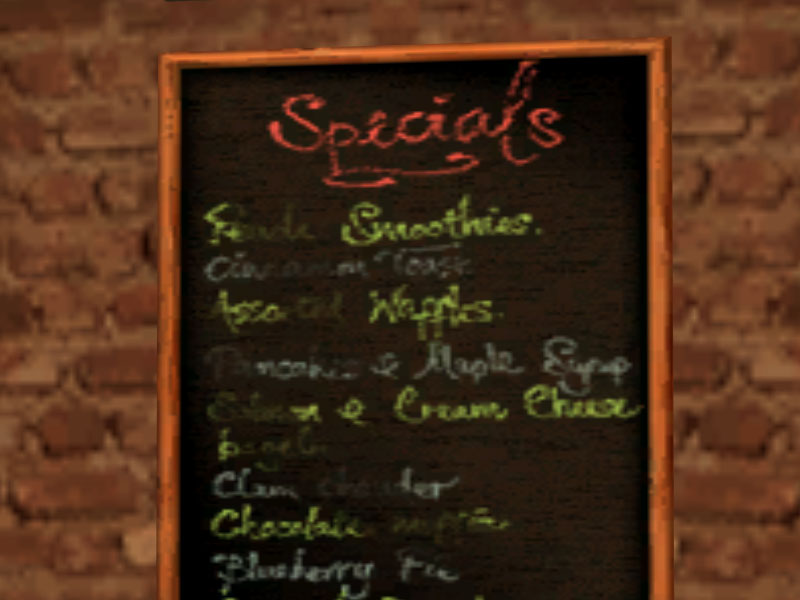 Specials
Smoothies.
Cinnamon Toast
Assorted Waffles.
Pancakes & Maple Syrup
Salmon & Cream Cheese
bagels
Clam chowder
Chocolate muffin
Blueberry Pie